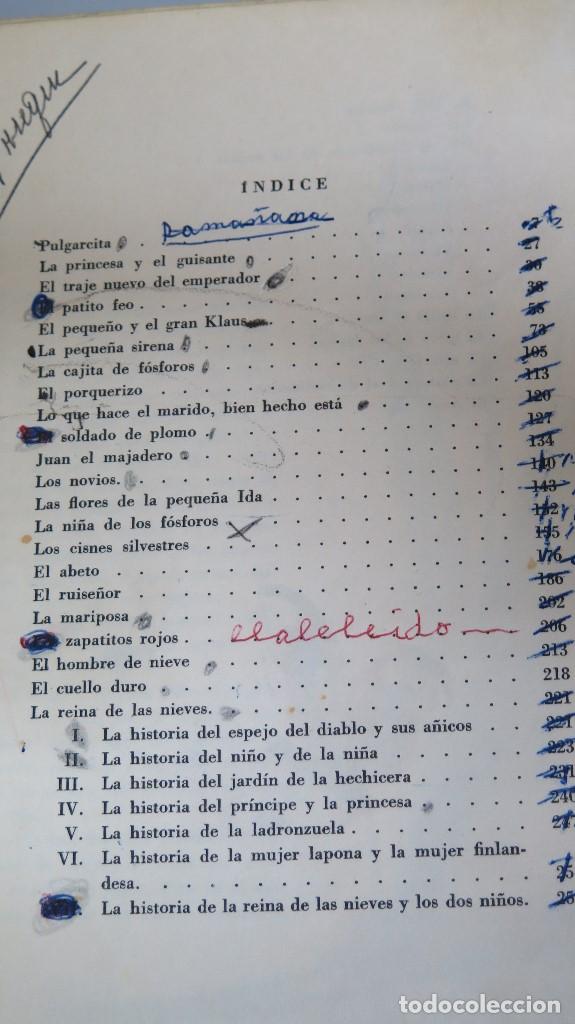 ÍNDICE
Pulgarcita . . . . . . . . . . . .
La princesa y el guisante . . . . . . . . . . . . 27
El traje nuevo del emperador . . . . . . . . . . . . 36
patito feo . . . . . . . . . . . . 38
El pequeño y el gran Klaus . . . . . . . . . . . . 55
La pequeña sirena . . . . . . . . . . . . 73
La cajita de fósforos . . . . . . . . . . . . 105
El porquerizo . . . . . . . . . . . . 113
Lo que hace el marido, bien hecho está . . . . . . . . . . 120
soldado de plomo . . . . . . . . . . . . 127
Juan el majadero . . . . . . . . . . . . 134
Los novios. . . . . . . . . . . . . 140
Las flores de la pequeña Ida . . . . . . . . . . . . 143
La niña de los fósforos . . . . . . . . . . . . 152
Los cisnes silvestres . . . . . . . . . . . . 155
El abeto . . . . . . . . . . . . 176
El ruiseñor . . . . . . . . . . . . 186
La mariposa . . . . . . . . . . . . 202
zapatitos rojos . . 206
El hombre de nieve . . . . . . . . . . . . 213
El cuello duro . . . . . . . . . . . . 218
La reina de las nieves. . . . . . . . . . . . . 221
I. La historia del espejo del diablo y sus añicos . . . 221
II. La historia del niño y de la niña . . . . . . . 223
III. La historia del jardín de la hechicera . . . . . . 231
IV. La historia del príncipe y la princesa . . . . . . 240
V. La historia de la ladronzuela . . . . . . . . 247
VI. La historia de la mujer lapona y la mujer finlan-
desa. . . . . . . . . . . . . 25
La historia de la reina de las nieves y los dos niños. 25
todocoleccion